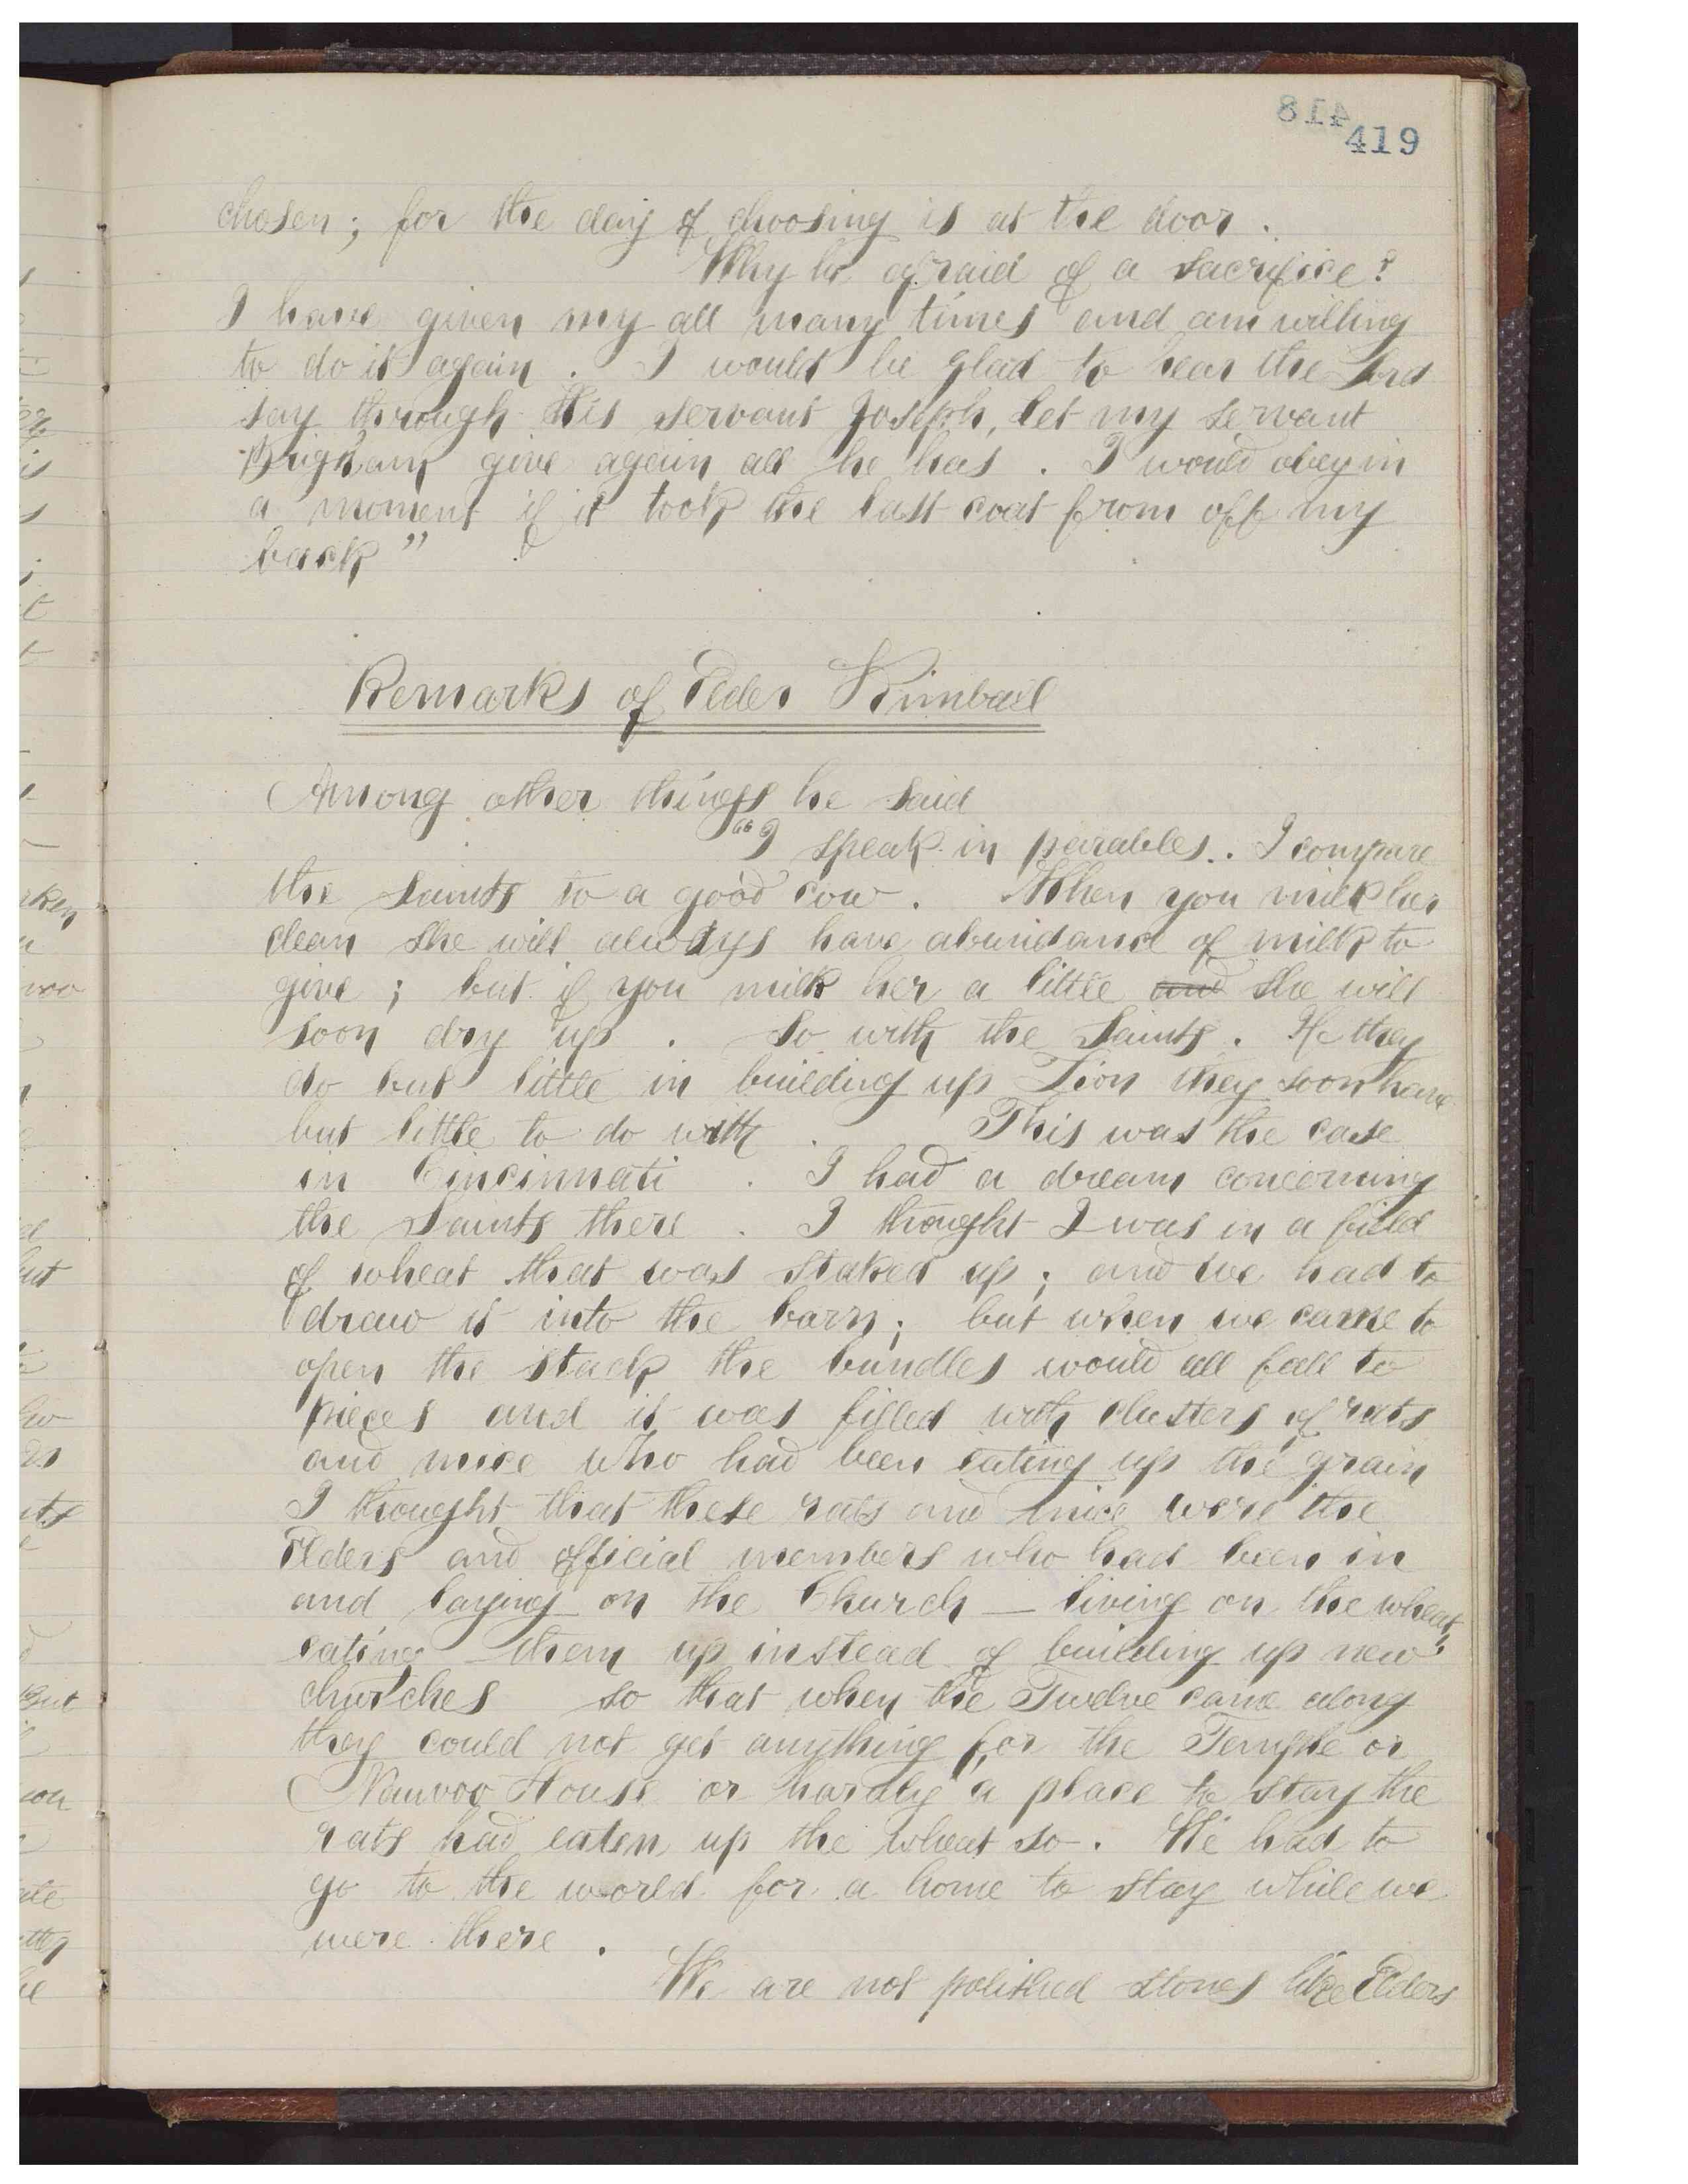 419
chosen; for the day of choosing is at the door.
Why be afraid of a sacrifice?
I have given my all many times and am willing
to do it again. I would be glad to hear the Lord
say through His servant Joseph, let my servant
Brigham give again all he has. I would obey in
a moment if it took the last coat from off my
back"
Remarks of Elder Kimball
Among other things he said
"I speak in parables. I compare
the Saints to a good cow. When you milk her
clean she will always have abundance of milk to
give; but if you milk her a little and she will
soon dry up. So with the Saints. If they
do but little in building up Zion they soon have
but little to do with. This was the case
in Cincinnati. I had a dream concerning
the Saints there. I thought I was in a field
of wheat that was staked up; and we had to
draw it into the barn; but when we came to
open the stack the bundles would all fall to
pieces and it was filled with clusters of rats
and mice who had been eating up the grain
I thought that these rats and mice were the
Elders and official members who had been in
and laying on the Church — living on the wheat,
eating them up instead of building up new
churches so that when the Twelve came along
they could not get anything for the Temple or
Nauvoo House or hardly a place to stay the
rats had eaten up the wheat so. We had to
go to the world for a home to stay while we
were there.
We are not polished stones like Elders